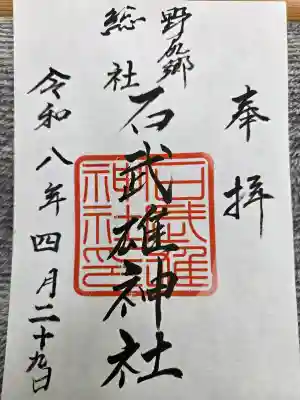 奉拝
野尻郷
総社
石武雄神社
石武雄神社印
令和八年四月二十九日